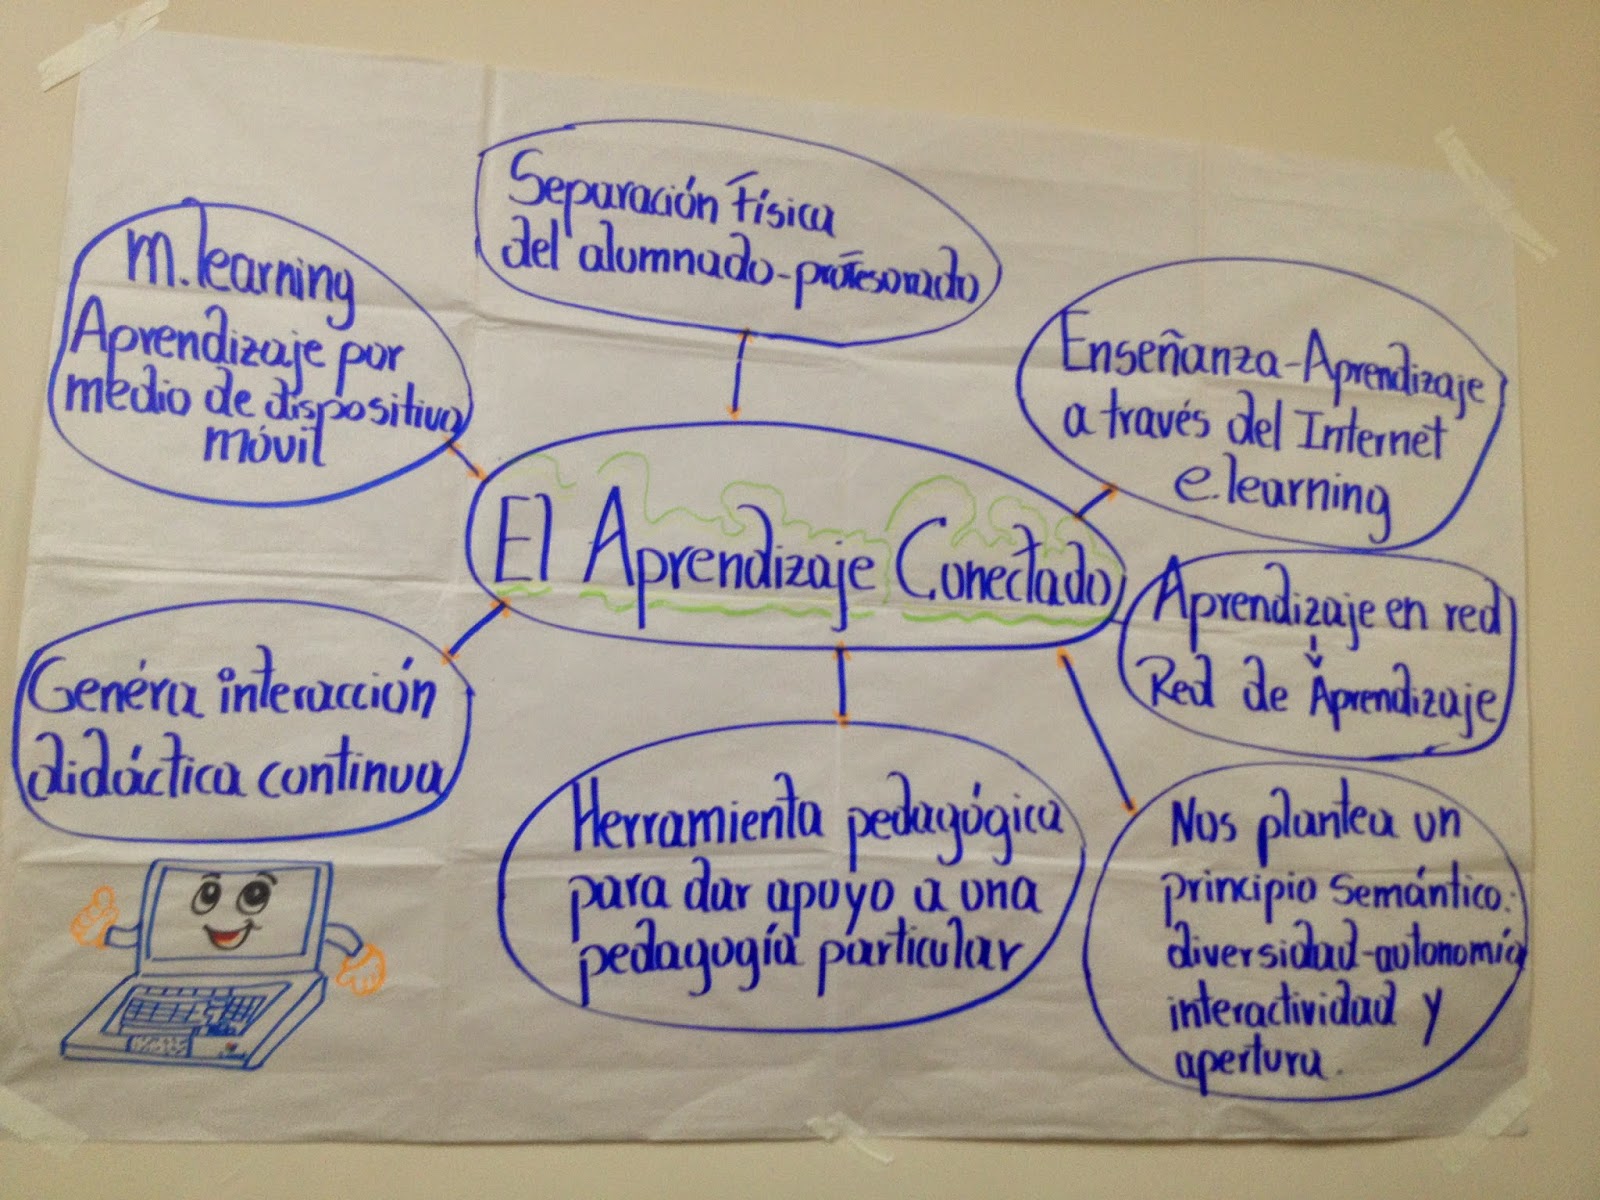 Separación Física
del alumnado-profesorado
m.learning
Aprendizaje por
medio de dispositivo
móvil
Enseñanza-Aprendizaje
a través del Internet
e.learning
El Aprendizaje Conectado
Aprendizaje en red
Red de Aprendizaje
Genéra interacción
didáctica continua
Herramienta pedagógica
para dar apoyo a una
pedagogía particular
Nos plantea un
principio semántico:
diversidad-autonomía
interactividad y
apertura.